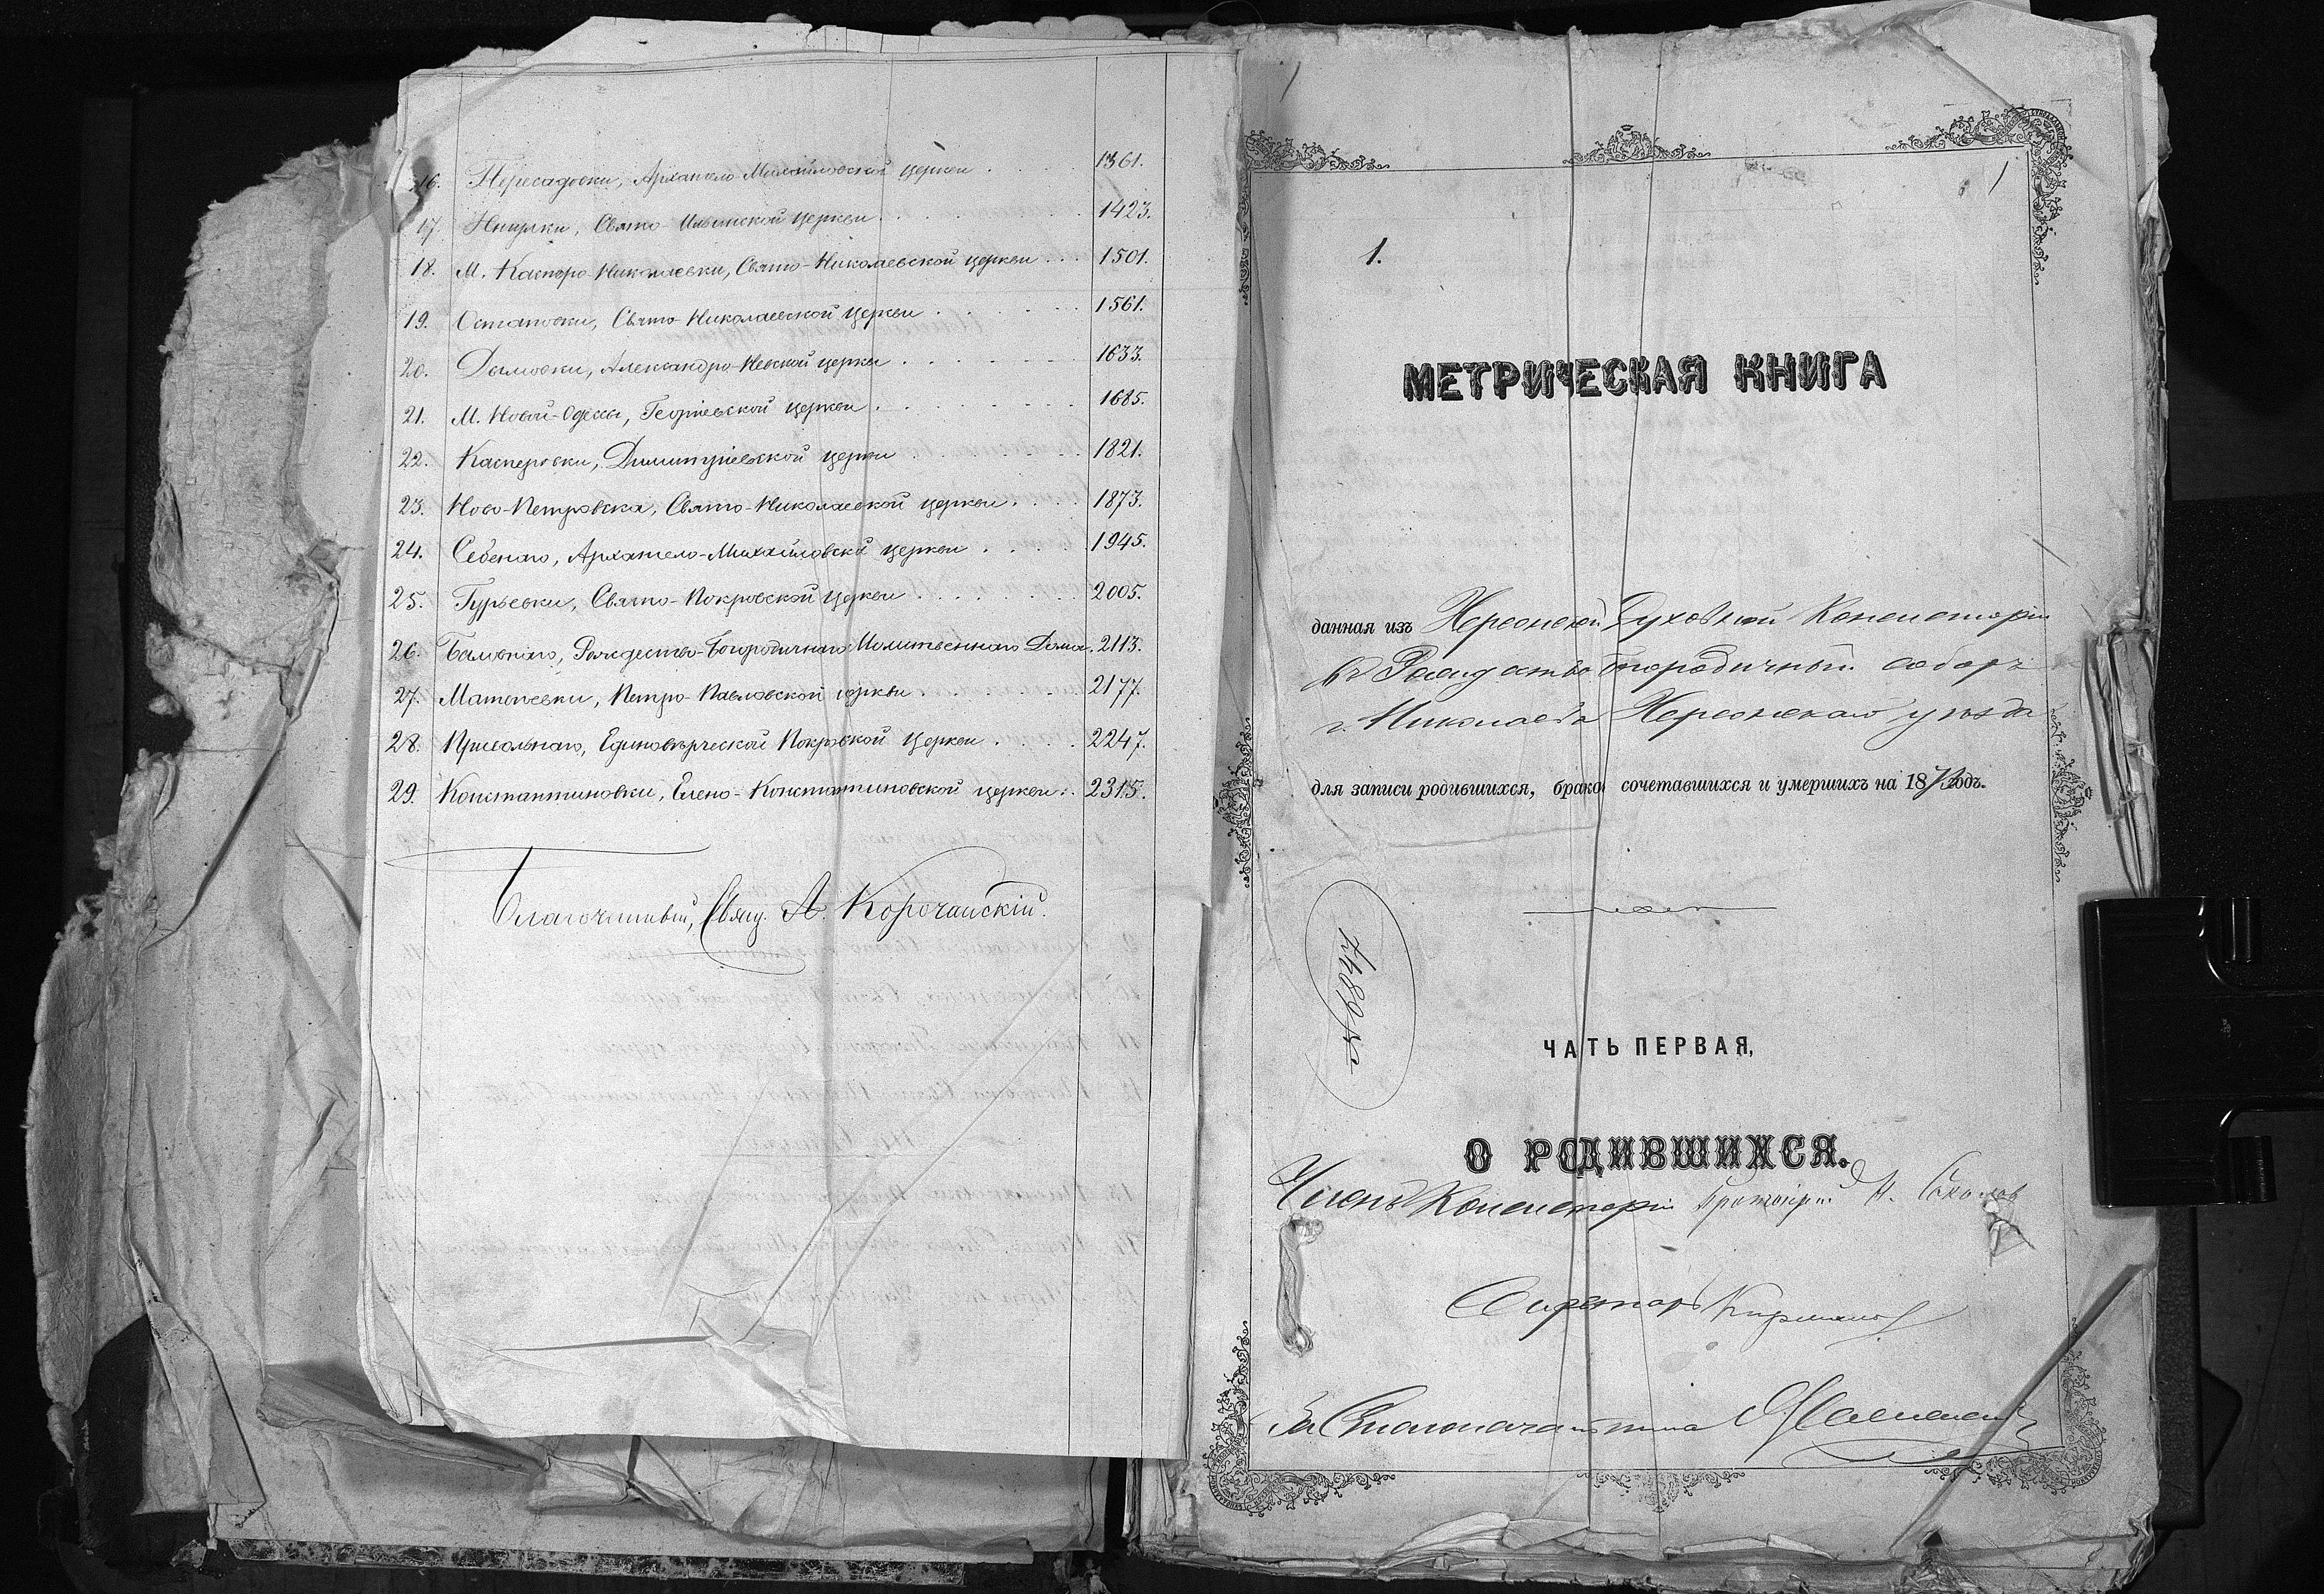 16. Пересадовки, Архангело-Михайловской церкви . . . 1361.
17. Янчулки, Свято-Ильинской церкви . . . 1423.
18. М. Касперо-Николаевки, Свято-Николаевской церкви . . . 1501.
19. Остаповки, Свято-Николаевской церкви . . . 1561.
20. Дымовки, Александро-Невской церкви . . . 1633.
21. М. Новой-Одессы, Георгіевской церкви . . . 1685.
22. Касперовки, Димитріевской церкви . . . 1821.
23. Ново-Петровска, Свято-Николаевской церкви . . . 1873.
24. Себенаго, Архангело-Михайловской церкви . . . 1945.
25. Гурьевки, Свято-Покровской церкви . . . 2005.
26. Рождество-Богородичнаго Молитвеннаго Дома. 2113.
27. Матвѣевки, Петро-Павловской церкви . . . 2177.
28. Привольнаго, Единовѣрческой Покровской церкви . . . 2247.
29. Константиновки, Елено-Константиновской церкви . . 2315.
Благочинный, Свящ. А. Корочанскій.
1
1
1.
МЕТРИЧЕСКАЯ КНИГА
данная изъ Херсонской Духовной Консисторіи
въ Рождество Богородичный соборъ
г. Николаева Херсонскаго уѣзда
для записи родившихся, брако сочетавшихся и умершихъ на 18 годъ.
ЧАСТЬ ПЕРВАЯ,
О РОДИВШИХСЯ.
Членъ Консисторіи Протоіерей Н. Соколов
Секретарь
За Столоначальника